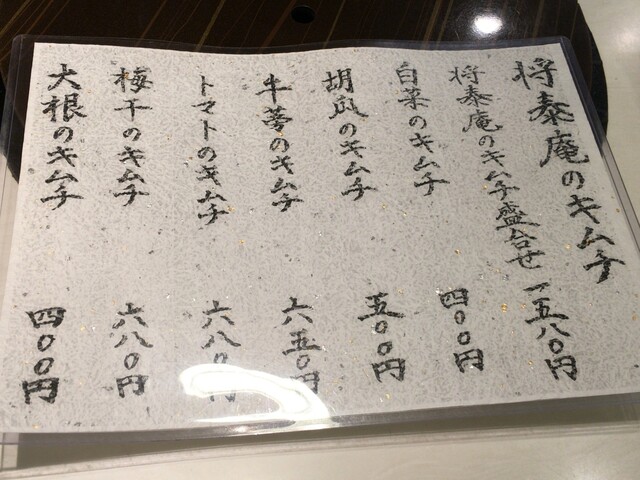 将泰庵のキムチ
将泰庵のキムチ盛合せ 一五八〇円
白菜のキムチ 四〇〇円
胡瓜のキムチ 五〇〇円
牛蒡のキムチ 六五〇円
トマトのキムチ 六八〇円
梅干のキムチ 六八〇円
大根のキムチ 四〇〇円